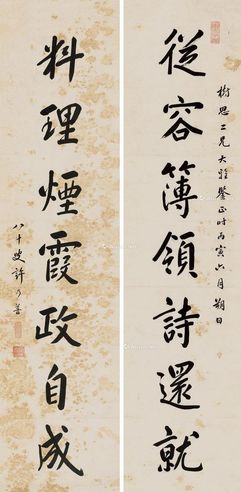 樹思二兄大雅鑒正時丙寅六月朔日
從容簿領詩還就
料理煙霞政自成
八十叟許乃普